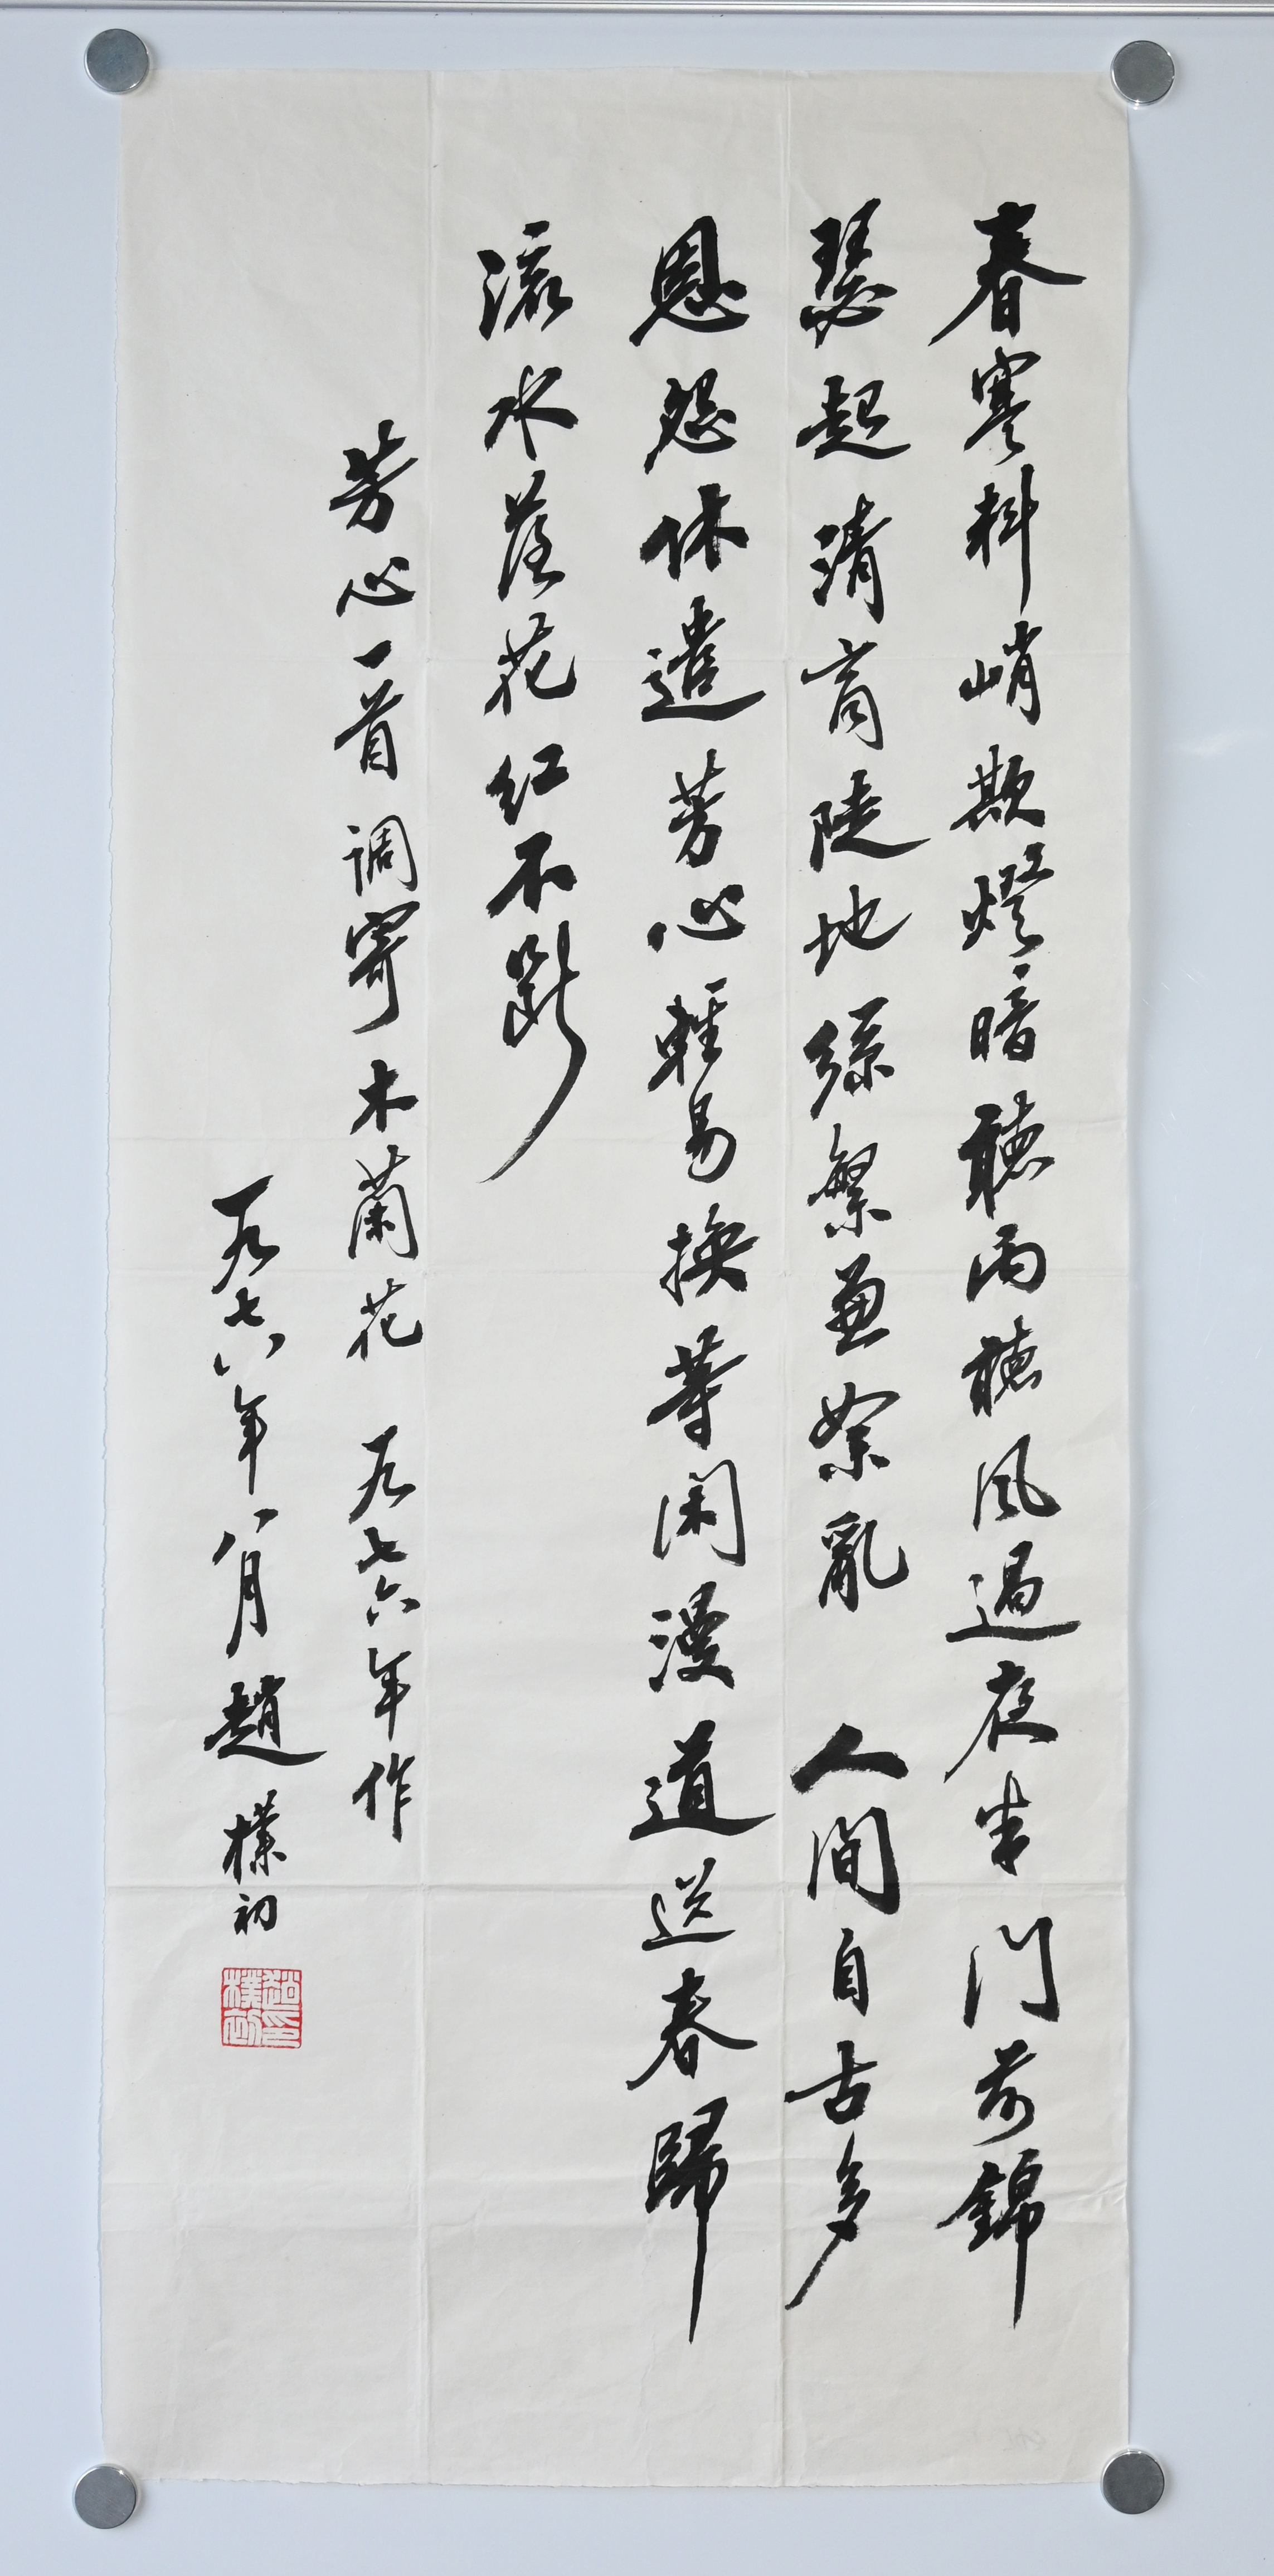 春寒料峭欺燈暗聽雨聽風過夜半門前錦
瑟起清商陡地絲繁兼絮亂 人間自古多
恩怨休遣芳心輕易換等闲漫道送春歸
流水落花红不斷
芳心一首调寄木蘭花 一九七六年作
一九七八年八月趙樸初
趙樸初印